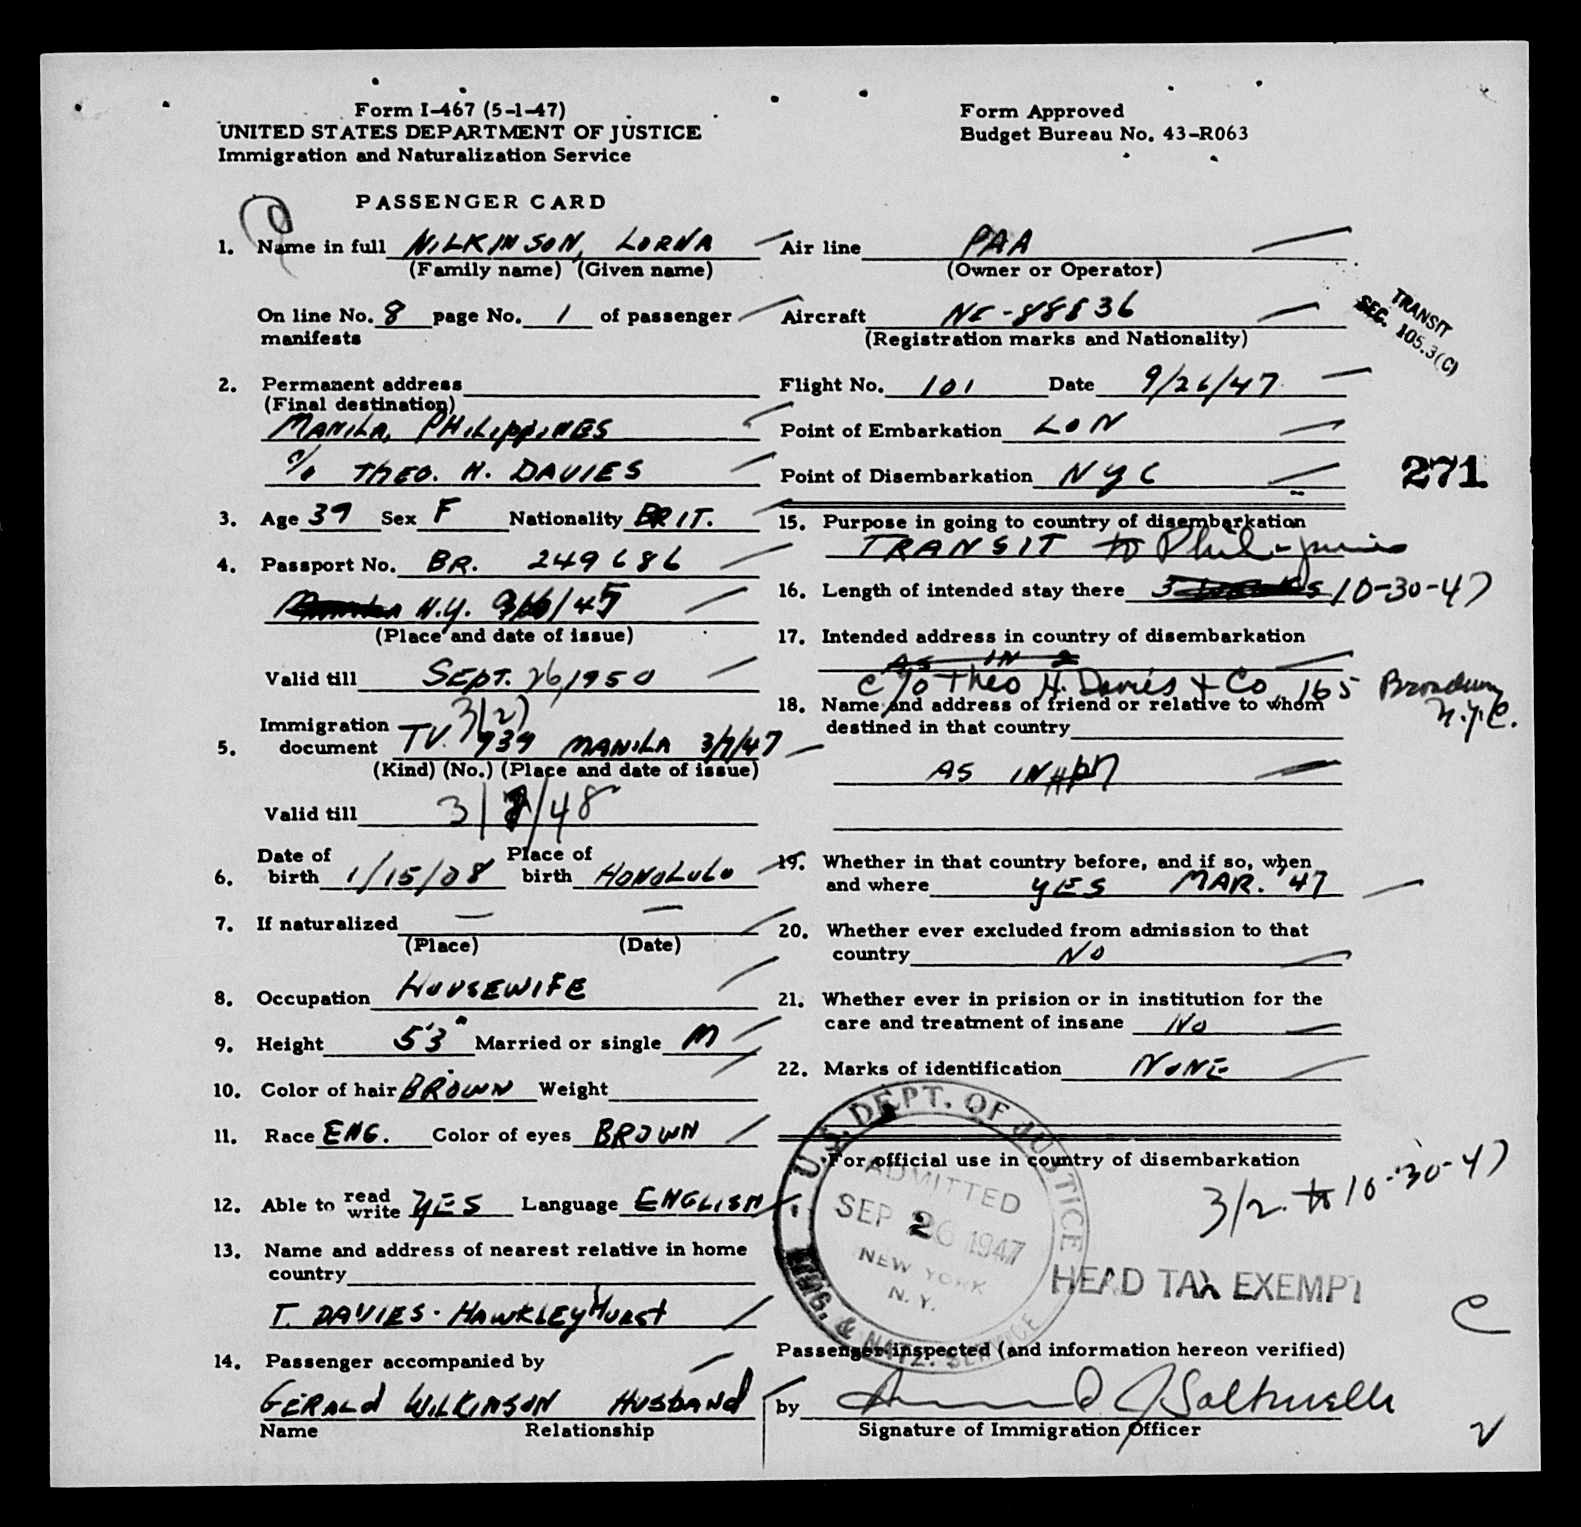 Form I-467 (5-1-47)
UNITED STATES DEPARTMENT OF JUSTICE
Immigration and Naturalization Service
Form Approved
Budget Bureau No. 43-R063
PASSENGER CARD
1. Name in full WILKINSON, LORNA
(Family name) (Given name)
On line No. 8 page No. 1 of passenger
manifests
2. Permanent address
(Final destination)
MANILA, PHILIPPINES
c/o THEO. H. DAVIES
3. Age 39 Sex F Nationality BRIT.
4. Passport No. BR. 249686
N.Y.
(Place and date of issue)
Valid till SEPT. 26, 1950
Immigration 3(2)
5. document TV. 939 MANILA 3/7/47
(Kind) (No.) (Place and date of issue)
Valid till 3/ /48
Date of Place of
6. birth 1/15/08 birth HONOLULU
7. If naturalized — —
(Place) (Date)
8. Occupation HOUSEWIFE
9. Height 5'3" Married or single M
10. Color of hair BROWN Weight
11. Race ENG. Color of eyes BROWN
12. Able to read write YES Language ENGLISH
13. Name and address of nearest relative in home
country
T. DAVIES - HAWKLEY HURST
14. Passenger accompanied by
GERALD WILKINSON HUSBAND
Name Relationship
Air line PAA
(Owner or Operator)
Aircraft NC-88836
(Registration marks and Nationality)
TRANSIT
SEC. 105.3(C)
Flight No. 101 Date 9/26/47
Point of Embarkation LON
Point of Disembarkation NYC
271
15. Purpose in going to country of disembarkation
TRANSIT to Philippines
16. Length of intended stay there 10-30-47
17. Intended address in country of disembarkation
AS IN 2
c/o Theo H. Davies & Co, 165 Broadway
N.Y.C.
18. Name and address of friend or relative to whom
destined in that country
AS IN #17
19. Whether in that country before, and if so, when
and where YES MAR. '47
20. Whether ever excluded from admission to that
country NO
21. Whether ever in prision or in institution for the
care and treatment of insane NO
22. Marks of identification NONE
For official use in country of disembarkation
3/2. to 10-30-47
U.S. DEPT. OF JUSTICE
ADMITTED
SEP 26 1947
NEW YORK
N.Y.
IMMG. & NATZ. SERVICE
HEAD TAX EXEMPT
C
Passenger inspected (and information hereon verified)
by
Signature of Immigration Officer